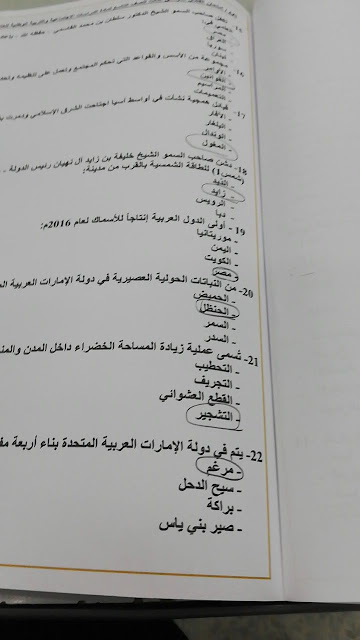 صاحب السمو الشيخ الدكتور سلطان بن محمد القاسمي - حفظه الله -
- مصر
- العراق
- سوريا
- لبنان
16- مجموعة من الأسس والقواعد التي تحكم المجتمع
- الأوامر
- القوانين
- المراسيم
- التعميمات
17- قبائل همجية نشأت في أواسط آسيا اجتاحت الشرق الإسلامي ودمرت
- البلغار
- الوندال
- المغول
18- دشن صاحب السمو الشيخ خليفة بن زايد آل نهيان رئيس الدولة
(شمس1) للطاقة الشمسية بالقرب من مدينة:
- زايد
- الرويس
- دبا
19 - أولى الدول العربية إنتاجاً للأسماك لعام 2016م:
- موريتانيا
- اليمن
- الكويت
- مصر
20- من النباتات الحولية العصيرية في دولة الإمارات العربية
- الحميض
- الحنظل
- السمر
- السدر
21- تسمى عملية زيادة المساحة الخضراء داخل المدن
- التحطيب
- التجريف
- القطع العشوائي
- التشجير
22- يتم في دولة الإمارات العربية المتحدة بناء أربعة
- مرغم
- سيح الدحل
- براكة
- صير بني ياس